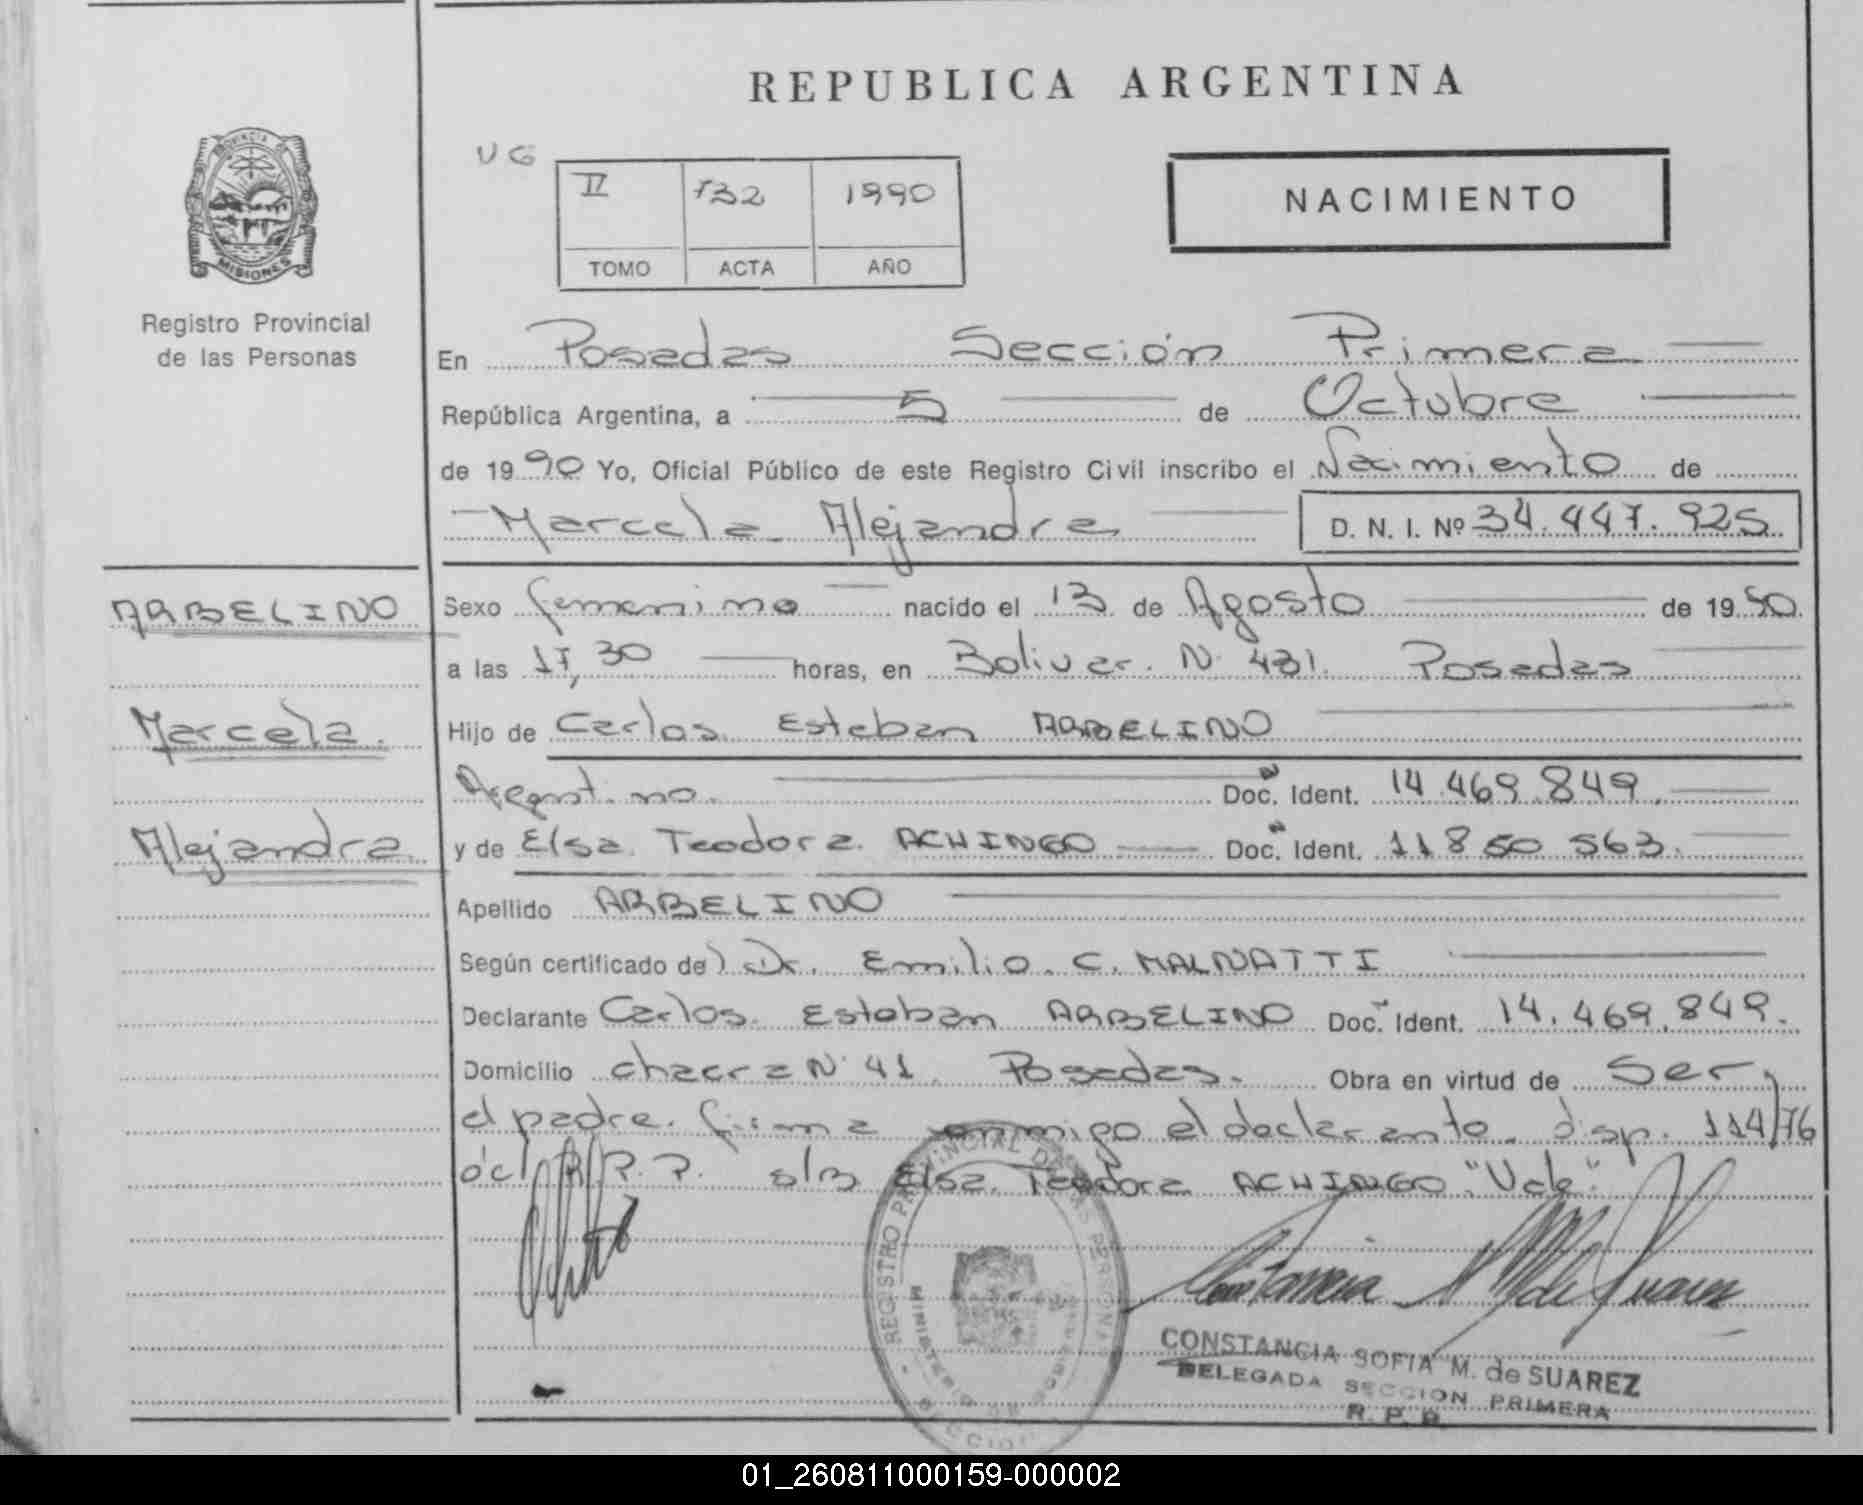 REPUBLICA ARGENTINA
PROVINCIA DE
MISIONES
Registro Provincial
de las Personas
UG
II 732 1990
TOMO ACTA AÑO
NACIMIENTO
En Posadas Sección Primera
República Argentina, a 5 de Octubre
de 1990 Yo, Oficial Público de este Registro Civil inscribo el Nacimiento de
Marcela Alejandra D. N. I. Nº 34.447.925
ARBELINO
Marcela
Alejandra
Sexo femenino nacido el 13 de Agosto de 1990
a las 17,30 horas, en Bolivar N° 431. Posadas
Hijo de Carlos Esteban ARBELINO
Argentino. Doc. Ident. 14.469.849.
y de Elsa Teodora ACHINGO Doc. Ident. 11850563.
Apellido ARBELINO
Según certificado de) Dr. Emilio C. MALNATTI
Declarante Carlos Esteban ARBELINO Doc. Ident. 14.469.849.
Domicilio chacra N° 41 Posadas. Obra en virtud de Ser
el padre. firma conmigo el declarante. disp. 114/76
del R.P.P. s/b Elsa Teodora ACHINGO "Vale".
REGISTRO PROVINCIAL DE LAS PERSONAS
MINISTERIO DE GOBIERNO
CONSTANCIA SOFIA M. de SUAREZ
DELEGADA SECCION PRIMERA
R. P. P.
01_260811000159-000002